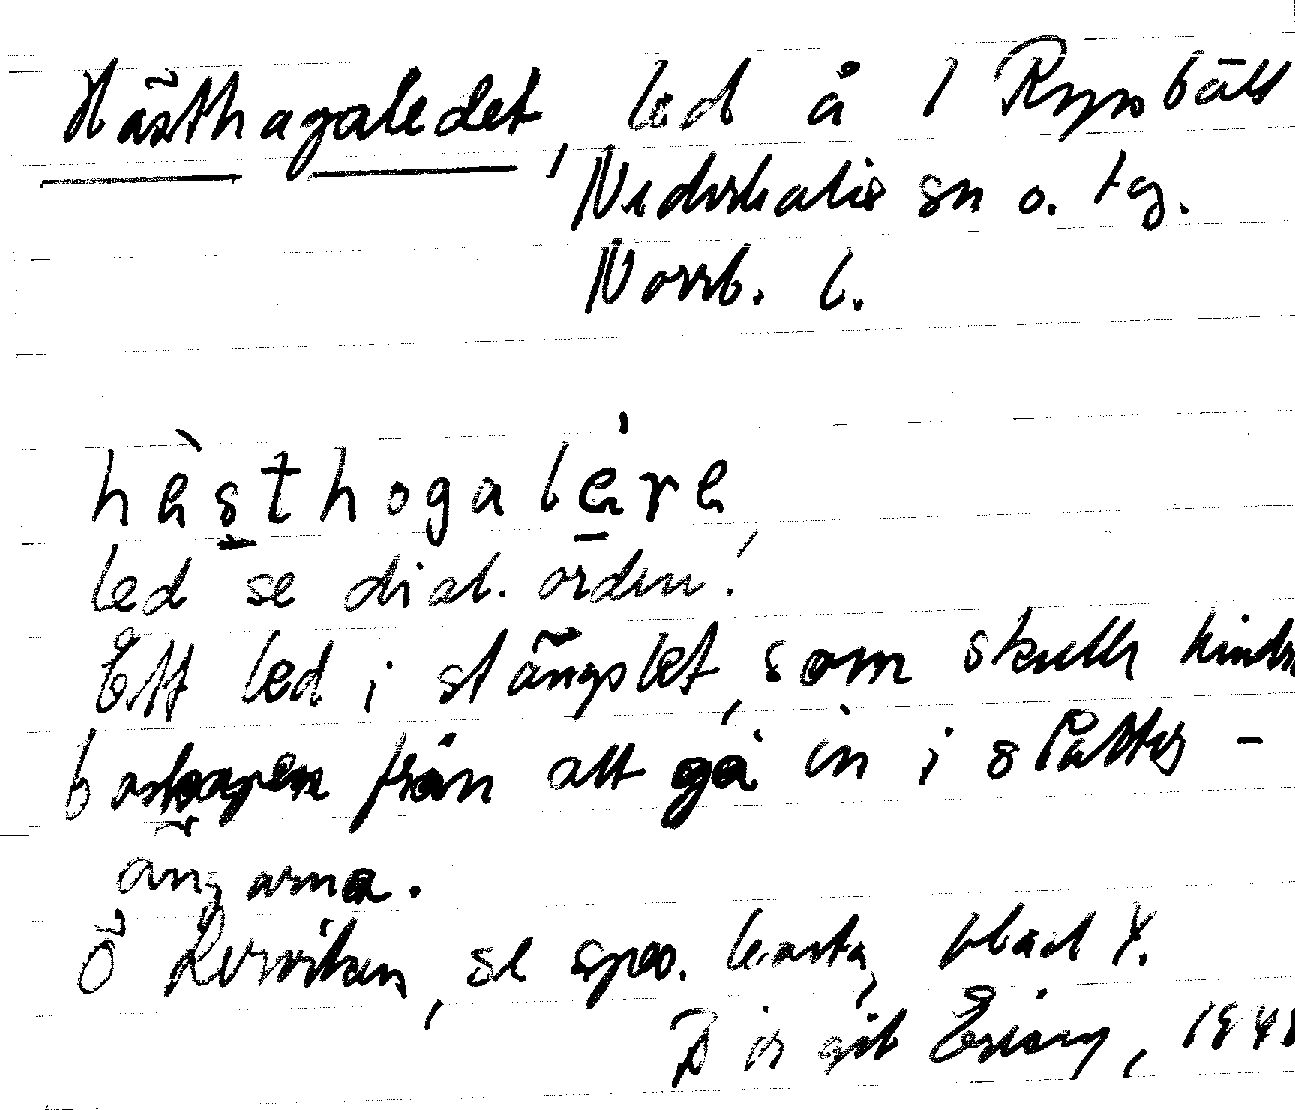 Hästhagaledet, led å 1 Ryssbält
Nederkalix sn o. tg.
Norrb. l.
hèsthogalére,
led se dial. orden!
Ett led i stängslet, som skulle hindra
boskapen från att gå in i slåtter-
ängarna.
Ö Lerviken, se spec. karta, blad Y.
Birgit Esing, 1941